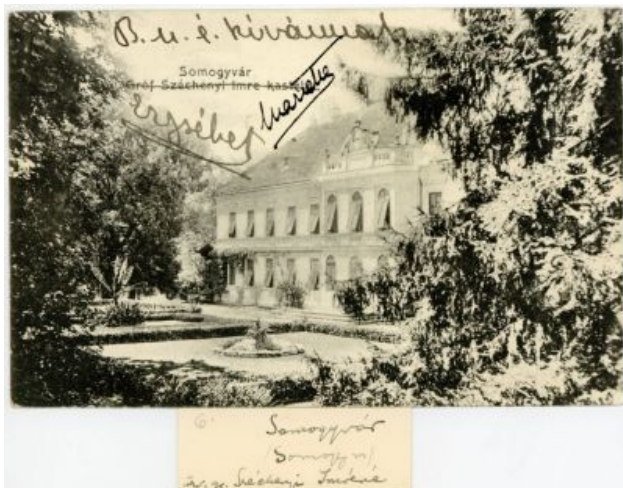 B. u. é. kívánnak
Somogyvár
Gróf Széchenyi Imre kastélya
Erzsébet
Mariska
6.
Somogyvár
(Somogy m)
Széchenyi Imréné